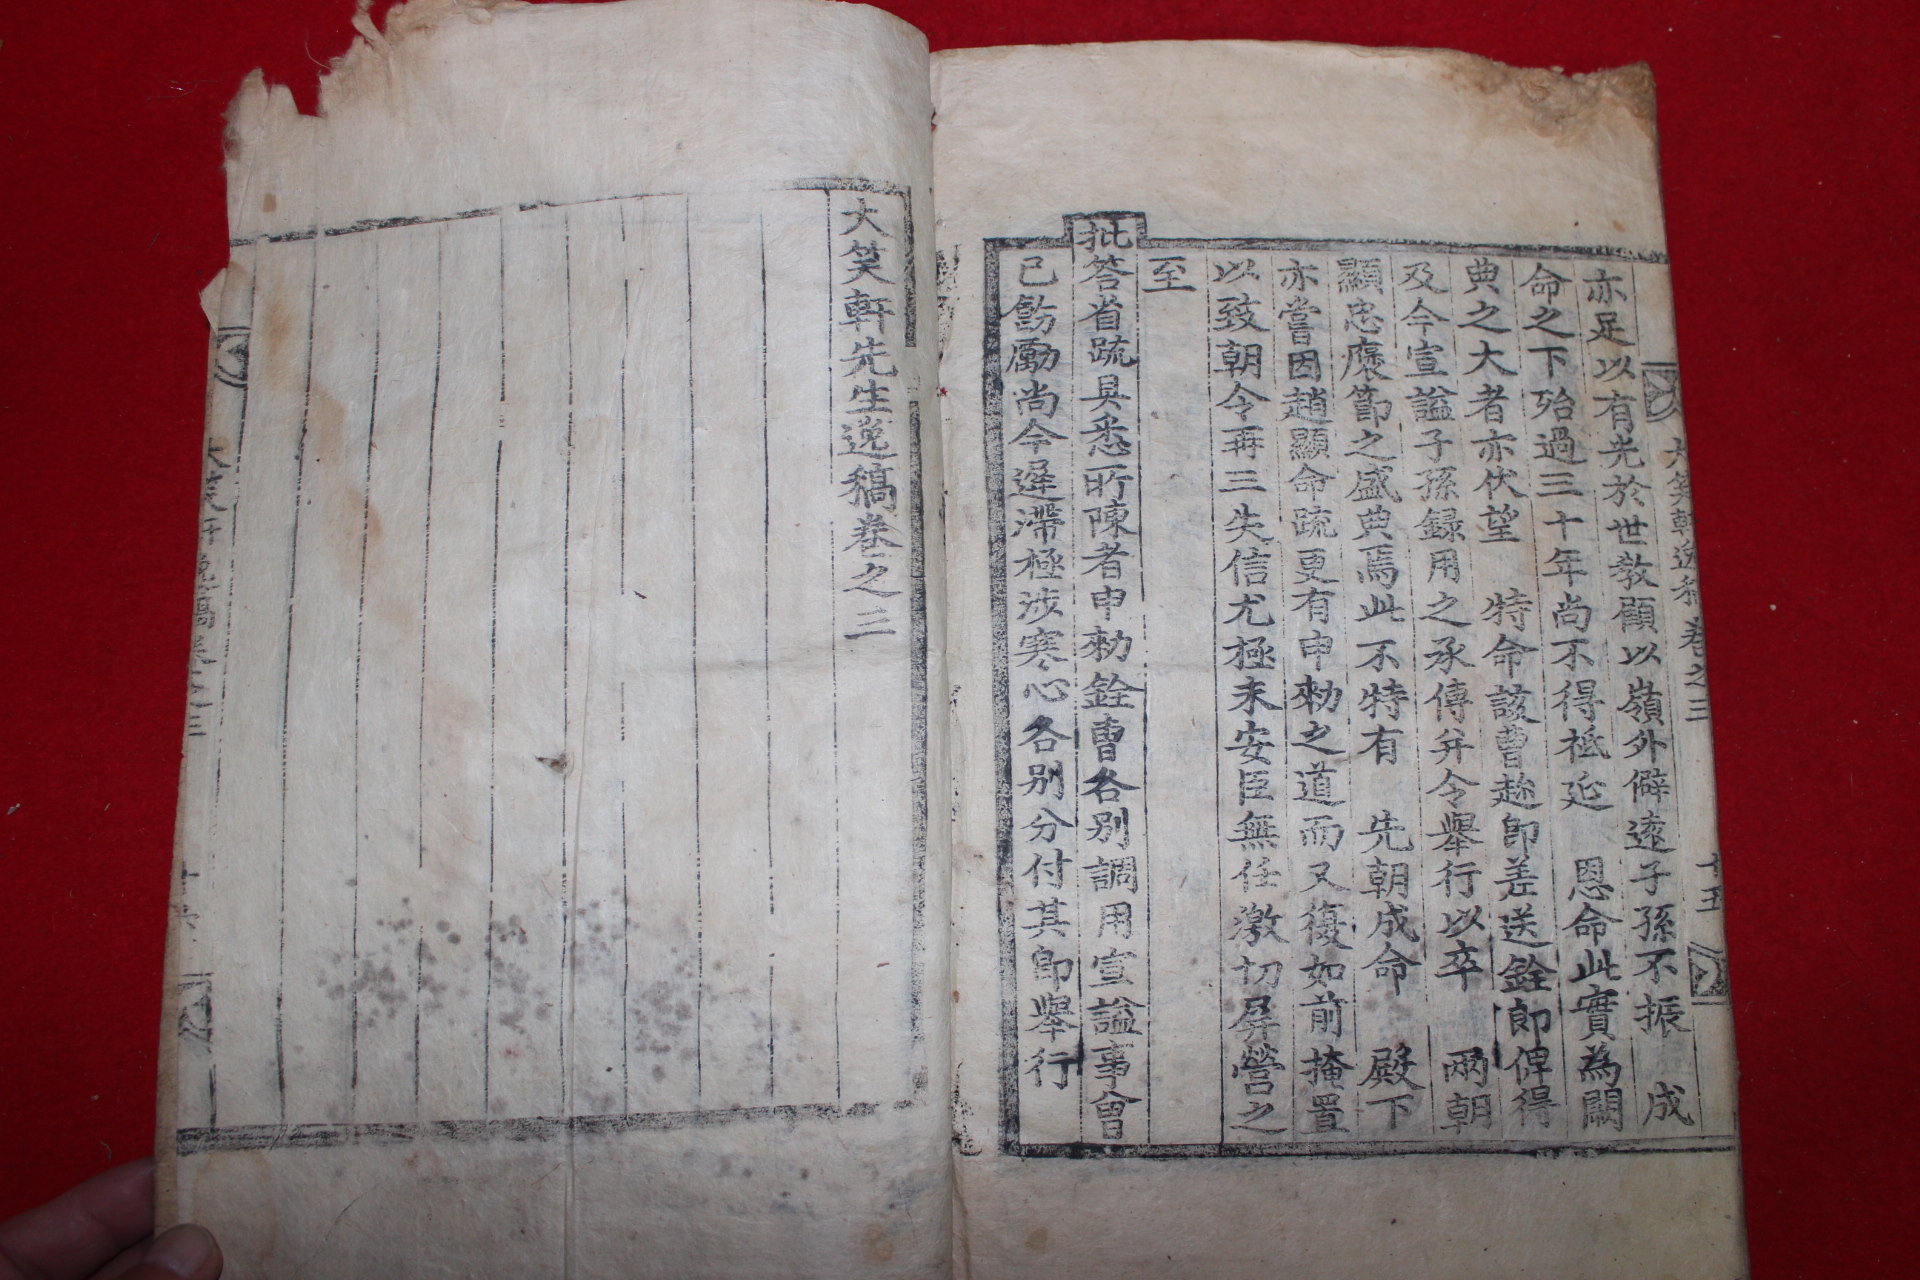 大笑軒逸稿 卷之三 十五
亦足以有光於世教顧以嶺外僻遠子孫不振 成
命之下殆過三十年尚不得祗延 恩命此實為闕
典之大者亦伏望 特命該曹趂卽差送銓郎俾得
及今宣諡子孫録用之承傳并令舉行以卒 兩朝
顯忠褒節之盛典焉此不特有 先朝成命 殿下
亦嘗因趙顯命疏更有申勑之道而又復如前掩置
以致朝令再三失信尤極未安臣無任激切屏營之
至
批答省疏具悉所陳者申勑銓曹各別調用宣諡事曾
已飭勵尚今遲滯極涉寒心各別分付其卽舉行
大笑軒先生逸稿卷之三
大笑軒逸稿卷之三